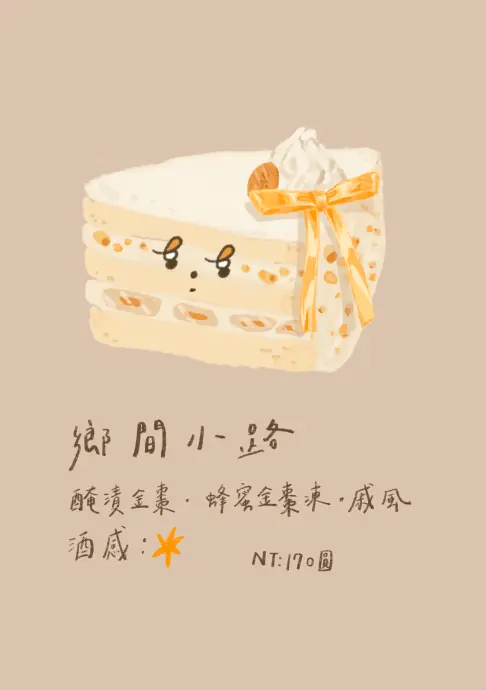 鄉間小路
醃漬金棗．蜂蜜金棗凍．戚風
酒感：
NT:170圓